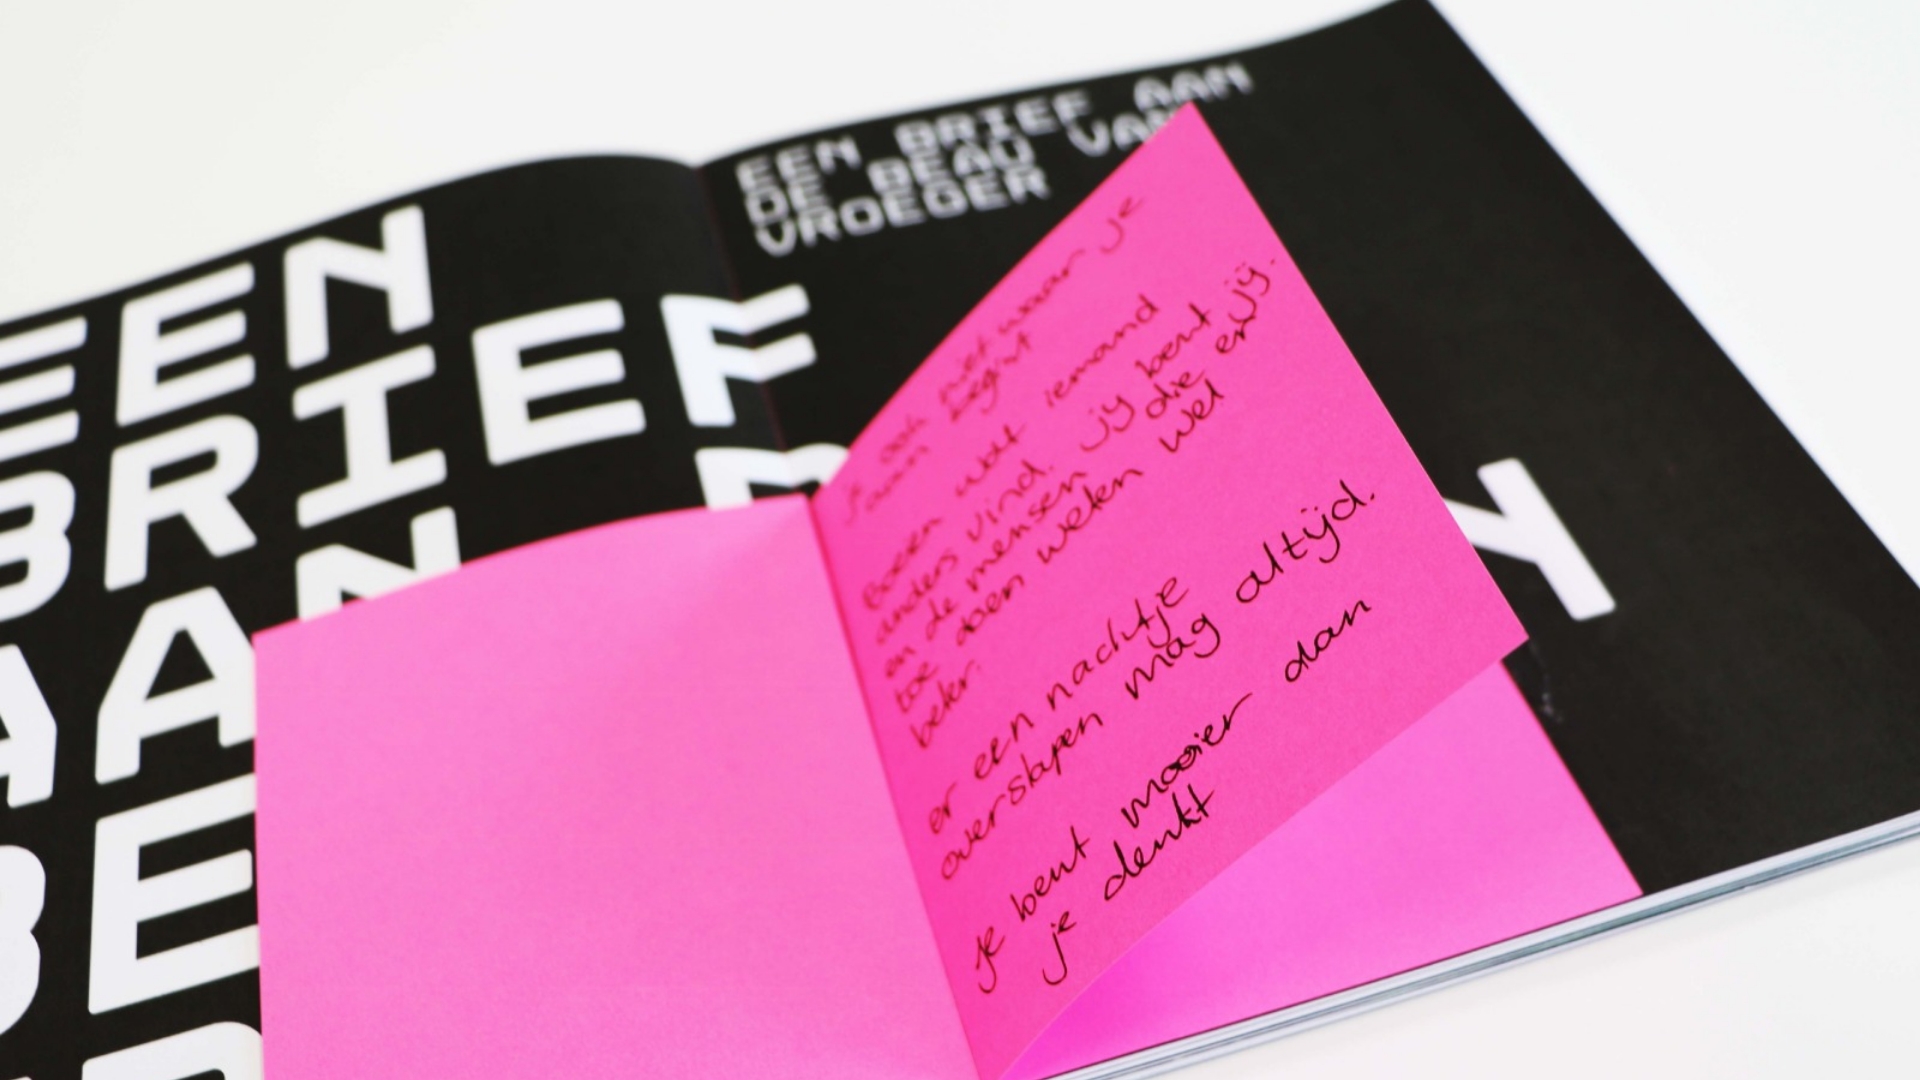 EEN BRIEF AAN
DE BEAU VAN
VROEGER
EEN
BRIEF
AAN
BE
ook niet waar je
aan begint
Boeien wat iemand
anders vind. jij bent
en de mensen die er
toe doen weten wel
beter.
er een nachtje
overslapen mag altijd.
je bent mooier dan
je denkt